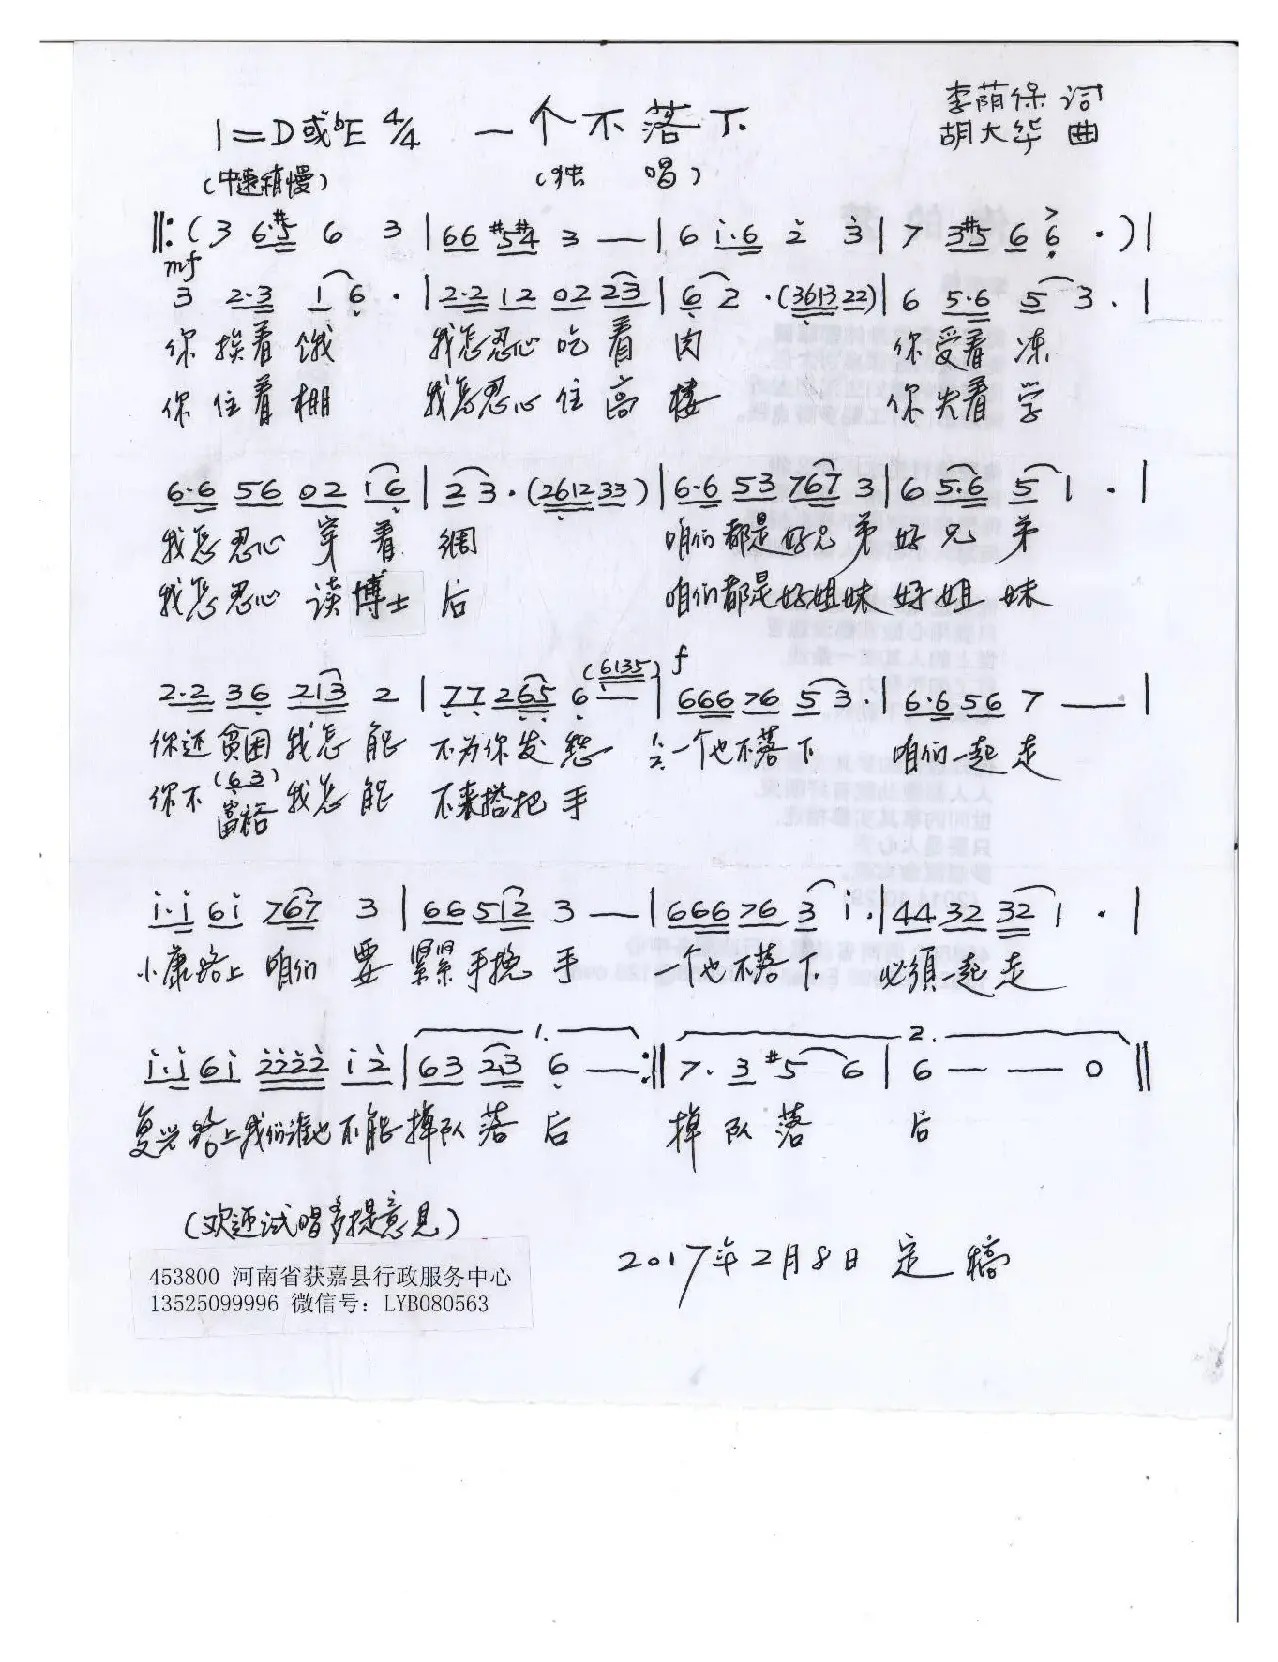 1=D或bE 4/4 一个不落下
李荫保 词
胡大华 曲
(中速稍慢)
(独 唱)
‖:( 3 6·#5 6 3 | 66 #5#4 3 — | 6 i·6 2 3 | 7 3#5 6 6 · ) |
mf
3 2·3 1 6 · | 2·2 12 02 23 | 6 2 ·(361322) | 6 5·6 5 3 · |
你 挨着 饿 我怎忍心 吃 着 肉 你 受着 冻
你 住着 棚 我怎忍心 住 高 楼 你 失着 学
6·6 56 02 16 | 2 3 ·(261233) | 6·6 53 767 3 | 6 5·6 5 1 · |
我怎忍心 穿 着 绸 咱们都是好兄弟 好兄 弟
我怎忍心 读博士 后 咱们都是好姐妹 好姐 妹
(6135) f
2·2 36 213 2 | 77 265 6 — | 666 76 5 3· | 6·6 56 7 — |
你还贫困 我怎 能 不为你发愁 一个也不落下 咱们一起走
(63)
你不富裕 我怎 能 不来搭把手
i·i 6i 767 3 | 66 512 3 — | 666 76 3 i· | 44 32 32 1 · |
小康路上 咱们 要 紧紧手挽 手 一个也不落下 必须一起 走
1. 2.
i·i 6i 2222 i2 | 63 23 6 — :‖ 7· 3 #5 6 | 6 — — 0 ‖
复兴路上我们谁也不能掉队落 后 掉 队 落 后
(欢迎试唱多提意见)
2017年2月8日 定 稿
453800 河南省获嘉县行政服务中心
13525099996 微信号：LYB080563